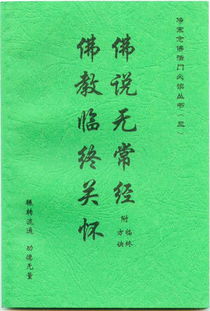 念佛法门必读丛书(三)
佛说无常经
附 临终
方诀
佛教临终关怀
辗转流通 功德无量